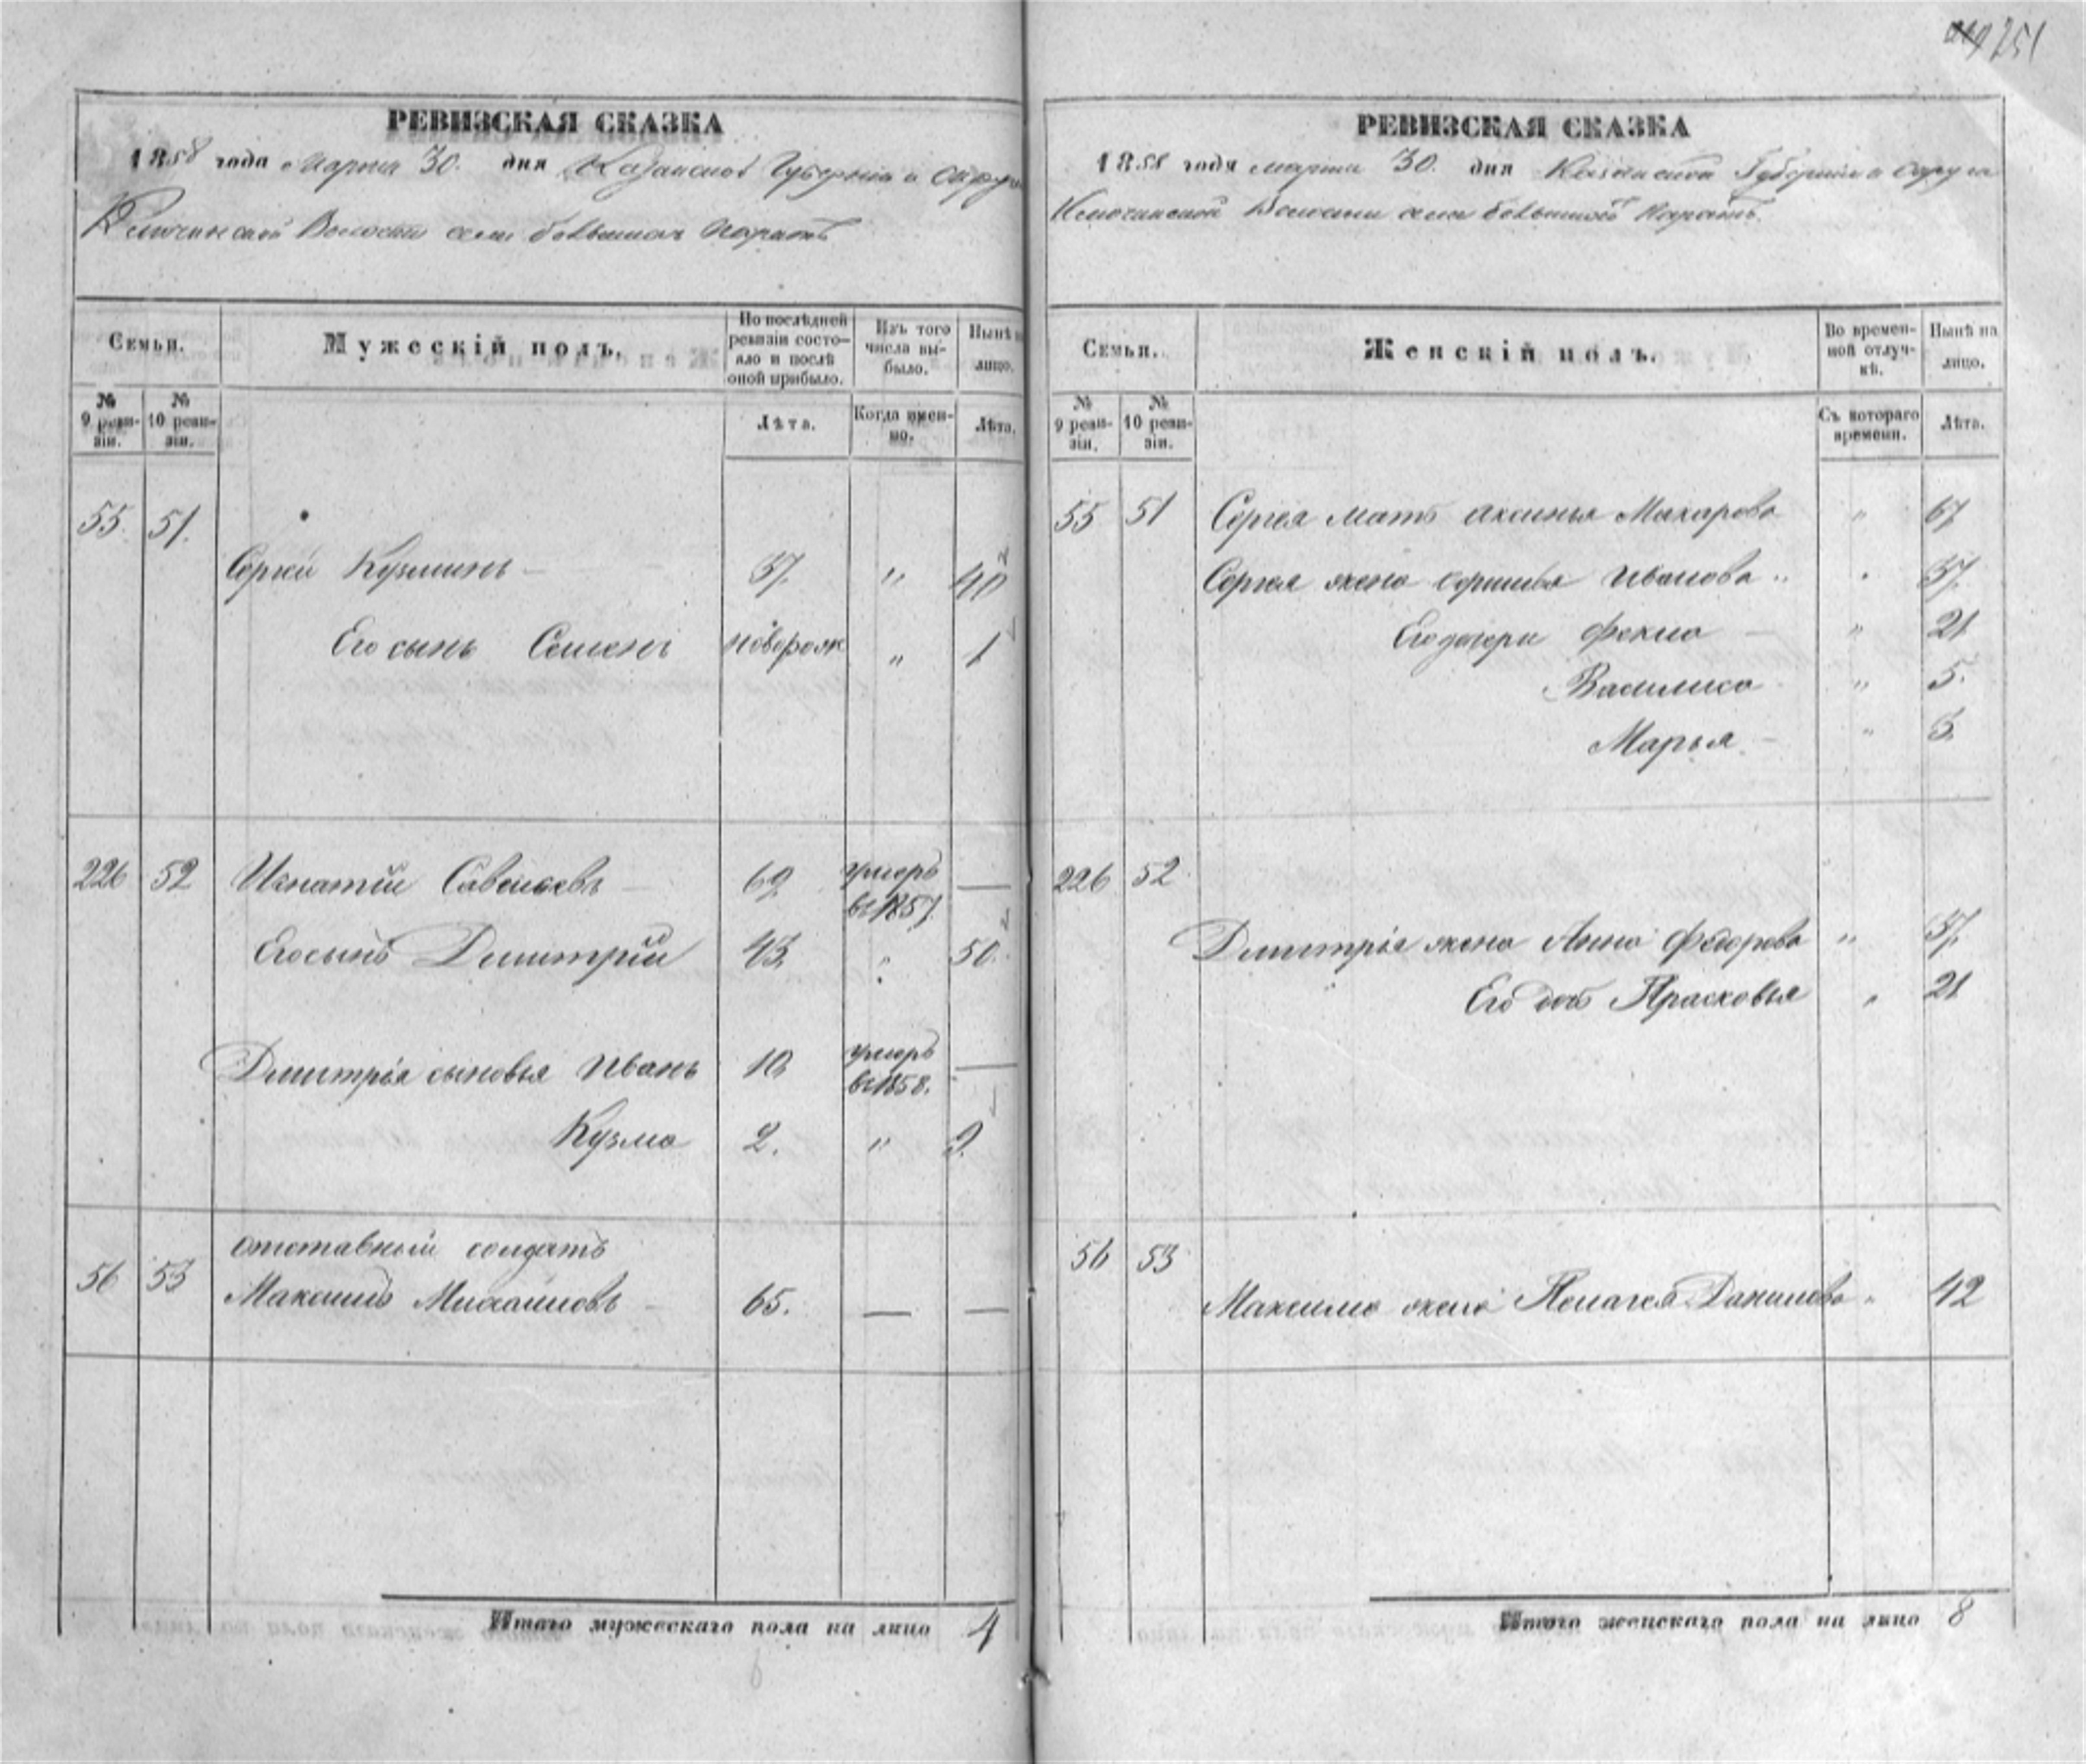 251
РЕВИЗСКАЯ СКАЗКА
1858 года Марта 30. дня Казанской Губерніи и Округа
Ключинской Волости села большихъ Паратъ
Семьи.
Мужескій полъ.
По послѣдней ревизіи состояло и послѣ оной прибыло.
Изъ того числа выбыло.
Нынѣ на лицо.
№ 9 ревизіи.
№ 10 ревизіи.
Лѣта.
Когда именно.
Лѣта.
55. 51.
Сергей Кузминъ — 37. " 40
Его сынъ Семенъ новорож " 1
226 52 Игнатій Савельевъ — 69. умеръ —
в 1857
Его сынъ Дмитрій 43. " 50.
Дмитрія сыновья Иванъ 10. умеръ —
в 1858.
Кузма 2. " 9.
отставный солдатъ
56 53 Максимъ Михайловъ — 65. — —
Итого мужескаго пола на лицо 4
РЕВИЗСКАЯ СКАЗКА
1858 года марта 30. дня Казанской Губерніи и округа
Ключинской Волости села большихъ Паратъ.
Семьи.
Женскій полъ.
Во временной отлучкѣ.
Нынѣ на лицо.
№ 9 ревизіи.
№ 10 ревизіи.
Съ котораго времени.
Лѣта.
55 51 Сергея мать Аксинья Макарова " 67
Сергея жена Ивановa " 37.
Его дочери Фекла — " 21
Василиса " 5.
Марья — " 3.
226 52
Дмитрія жена Анна Федорова " 37.
Его дочь Прасковья " 21
56 53
Максима жена Пелагея Данилова " 42
Итого женскаго пола на лицо 8